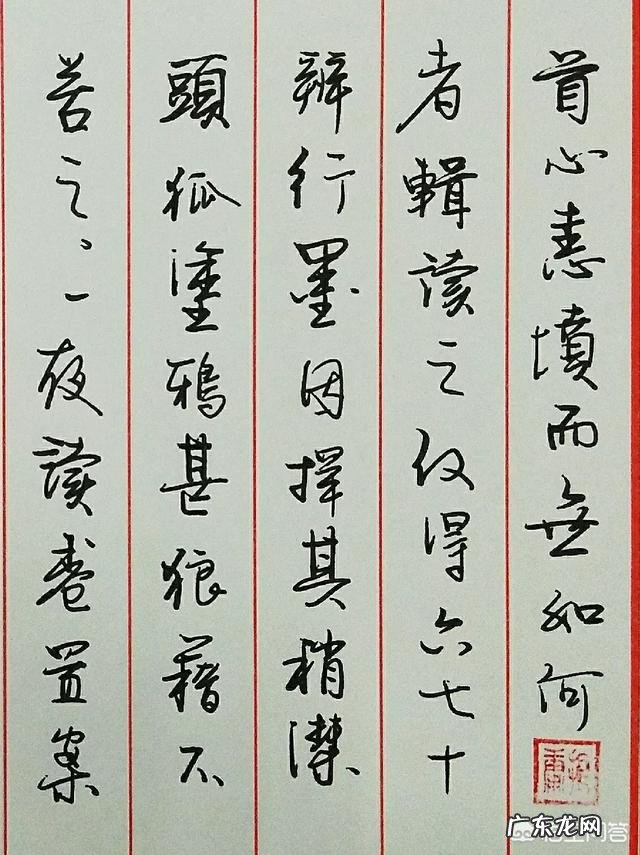 苦之、一夜讀卷置案
頭狐塗鴉甚狼藉不
辨行墨因擇其稍潔
者輯讀之仅得六七十
首心恚憤而無如何
广东龙网